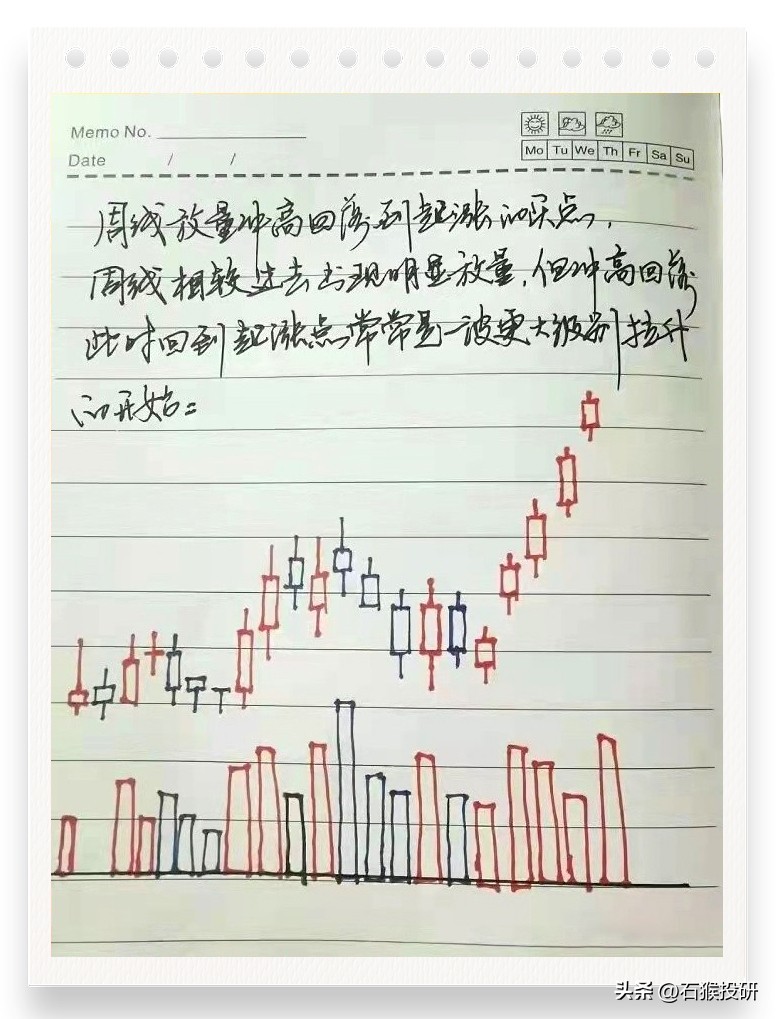 Memo No.
Date / /
Mo Tu We Th Fr Sa Su
周线放量冲高回落到起涨的买点,
周线相较过去出现明显放量,但冲高回落
此时回到起涨点常常是一波更大级别拉升
的开始:
头条 @石猴投研